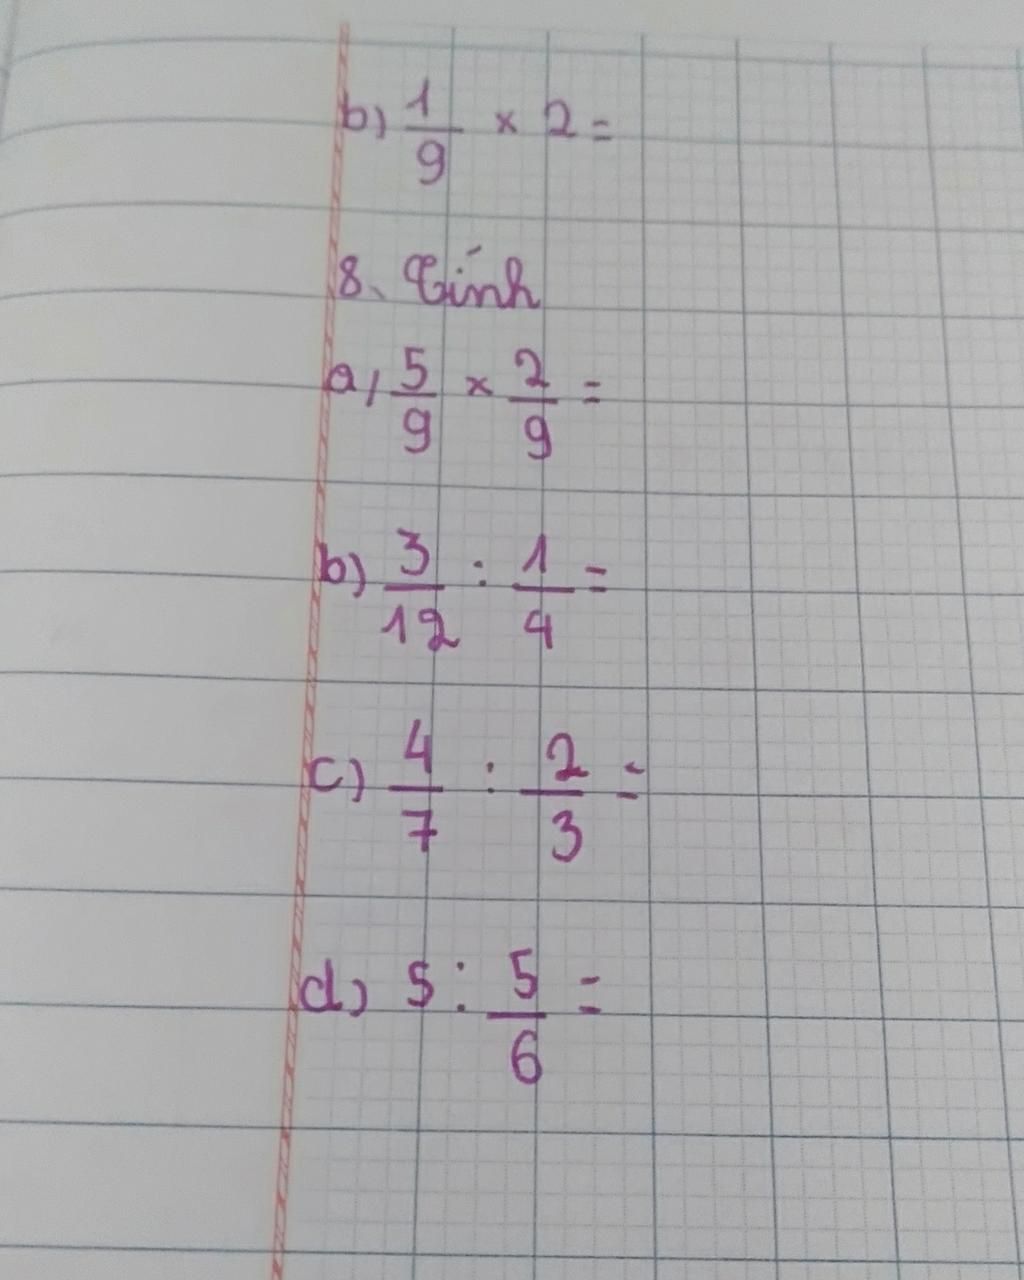 b) 1/9 × 2 =
8. Tính
a, 5/9 × 2/9 =
b) 3/12 : 1/4 =
c) 4/7 : 2/3 =
d) 5 : 5/6 =